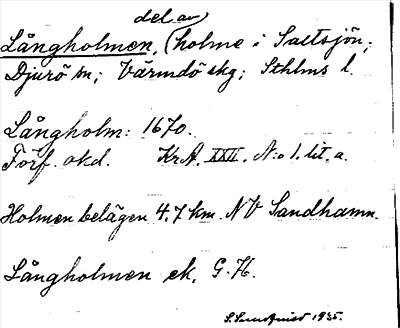 del av
Långholmen, (holme i Saltsjön;
Djurö sn; Värmdö skg; Sthlms l.
Långholm: 1670.
Förf. okd. KrA. XXII. N:o 1. lit. a.
Holmen belägen 4.7 km. NV Sandhamn.
Långholmen ek. G.K.
S. Sundqvist 1935.